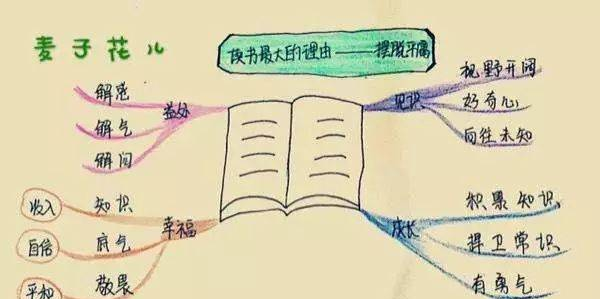 麦子花儿
读书最大的理由——摆脱平庸
益处
解惑
解气
解闷
见识
视野开阔
好奇心
向往未知
幸福
知识
收入
底气
自信
敬畏
平和
成长
积累知识
捍卫常识
有勇气